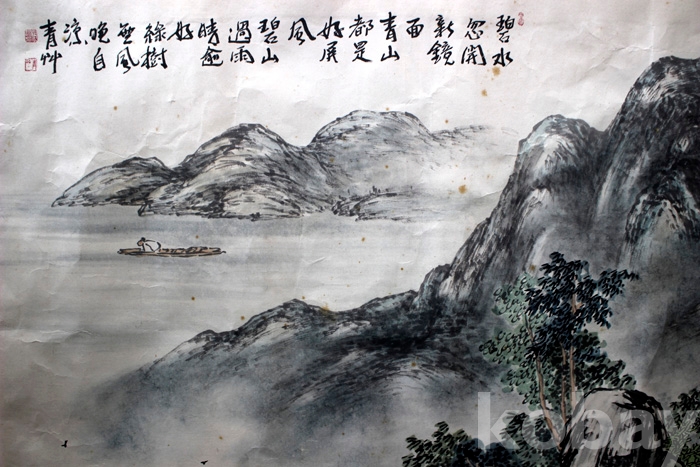 碧水
忽開
新鏡
面
青山
都是
好屏
風
碧山
過雨
晴逾
好
綠樹
無風
晚自
涼
青艸
kobay